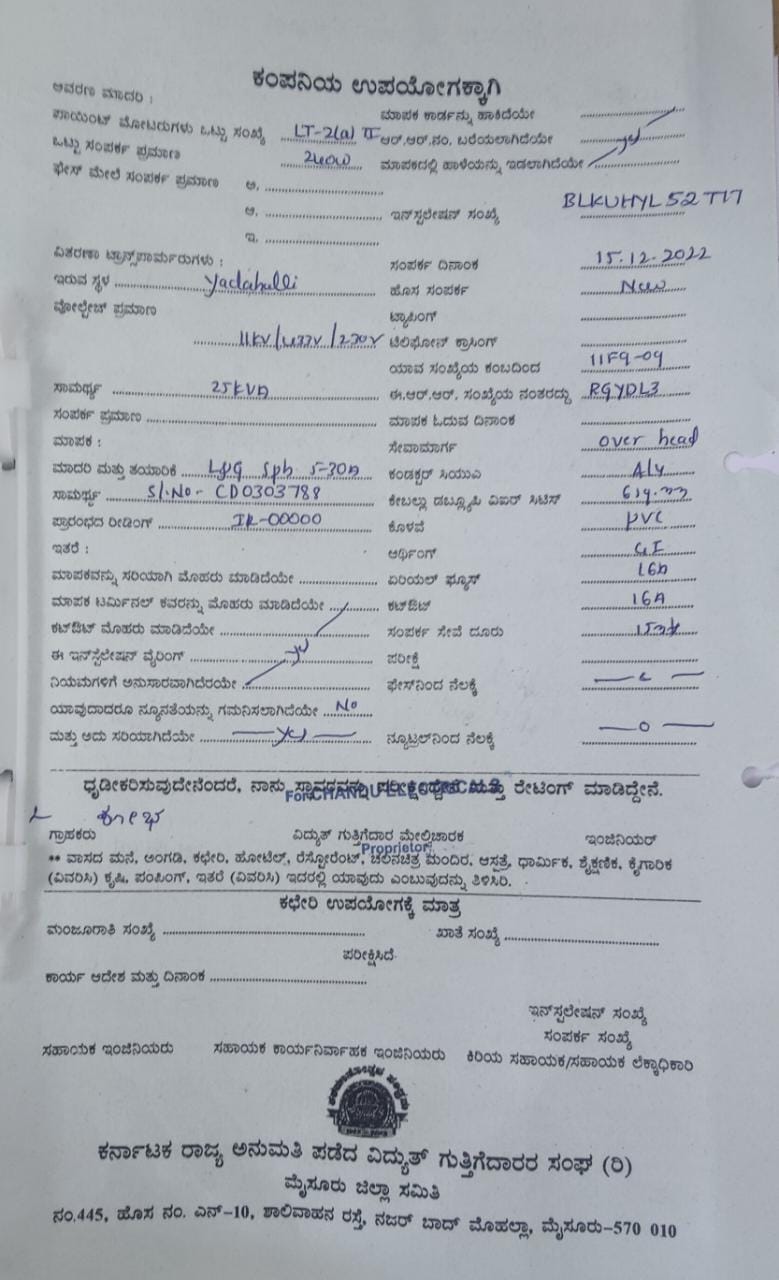 ಕಂಪನಿಯ ಉಪಯೋಗಕ್ಕಾಗಿ
ಆವರಣ ಮಾದರಿ :
ಮಾಪಕ ಕಾರ್ಡನ್ನು ಹಾಕಿದೆಯೇ
ಪಾಯಿಂಟ್ ಮೋಟರುಗಳು ಒಟ್ಟು ಸಂಖ್ಯೆ LT-2(a) II ಆರ್.ಆರ್.ನಂ. ಬರೆಯಲಾಗಿದೆಯೇ yes
ಒಟ್ಟು ಸಂಪರ್ಕ ಪ್ರಮಾಣ 240W ಮಾಪಕದಲ್ಲಿ ಹಾಳೆಯನ್ನು ಇಡಲಾಗಿದೆಯೇ
ಫೇಸ್ ಮೇಲೆ ಸಂಪರ್ಕ ಪ್ರಮಾಣ ಅ.
ಆ. ಇನ್‌ಸ್ಟಲೇಷನ್ ಸಂಖ್ಯೆ BLKUHYL52T17
ಇ.
ವಿತರಣಾ ಟ್ರಾನ್ಸ್‌ಫಾರ್ಮರುಗಳು : ಸಂಪರ್ಕ ದಿನಾಂಕ 15.12.2022
ಇರುವ ಸ್ಥಳ Yadahalli ಹೊಸ ಸಂಪರ್ಕ New
ವೋಲ್ಟೇಜ್ ಪ್ರಮಾಣ ಟ್ಯಾಪಿಂಗ್
11KV/433V/230V ಟೆಲಿಫೋನ್ ಕ್ರಾಸಿಂಗ್
ಯಾವ ಸಂಖ್ಯೆಯ ಕಂಬದಿಂದ 11F9-09
ಸಾಮರ್ಥ್ಯ 25KVA ಈ.ಆರ್.ಆರ್. ಸಂಖ್ಯೆಯ ನಂತರದ್ದು RGYDL3
ಸಂಪರ್ಕ ಪ್ರಮಾಣ ಮಾಪಕ ಓದುವ ದಿನಾಂಕ
ಮಾಪಕ : ಸೇವಾಮಾರ್ಗ over head
ಮಾದರಿ ಮತ್ತು ತಯಾರಿಕೆ L&G Sph 5-30A ಕಂಡಕ್ಟರ್ ಸಿಯುಎ Aly
ಸಾಮರ್ಥ್ಯ Sl.No- CD0303788 ಕೇಬಲ್ಲು ಡಬ್ಲ್ಯೂಪಿ ವಿಐಆರ್ ಸಿಟಿಸ್
ಪ್ರಾರಂಭದ ರೀಡಿಂಗ್ IR-00000 ಕೊಳವೆ PVC
ಇತರೆ : ಆರ್ಥಿಂಗ್ GI
ಮಾಪಕವನ್ನು ಸರಿಯಾಗಿ ಮೊಹರು ಮಾಡಿದೆಯೇ ಏರಿಯಲ್ ಫ್ಯೂಸ್ 16A
ಮಾಪಕ ಟರ್ಮಿನಲ್ ಕವರನ್ನು ಮೊಹರು ಮಾಡಿದೆಯೇ ಕಟ್‌ಔಟ್ 16A
ಕಟ್‌ಔಟ್ ಮೊಹರು ಮಾಡಿದೆಯೇ ಸಂಪರ್ಕ ಸೇವೆ ದೂರು
ಈ ಇನ್‌ಸ್ಟಲೇಷನ್ ವೈರಿಂಗ್ yes ಪರೀಕ್ಷೆ
ನಿಯಮಗಳಿಗೆ ಅನುಸಾರವಾಗಿದೆರಯೇ ಫೇಸ್‌ನಿಂದ ನೆಲಕ್ಕೆ
ಯಾವುದಾದರೂ ನ್ಯೂನತೆಯನ್ನು ಗಮನಿಸಲಾಗಿದೆಯೇ No
ಮತ್ತು ಅದು ಸರಿಯಾಗಿದೆಯೇ yes ನ್ಯೂಟ್ರಲ್‌ನಿಂದ ನೆಲಕ್ಕೆ —0—
ಧೃಡೀಕರಿಸುವುದೇನೆಂದರೆ, ನಾನು ಸ್ಥಾವರವನ್ನು ಪರೀಕ್ಷಿದ್ದೇನೆ ಮತ್ತು ರೇಟಿಂಗ್ ಮಾಡಿದ್ದೇನೆ.
For CHANDU ELECTRICALS
ಗ್ರಾಹಕರು ವಿದ್ಯುತ್ ಗುತ್ತಿಗೆದಾರ ಮೇಲ್ವಿಚಾರಕ ಇಂಜಿನಿಯರ್
Proprietor
** ವಾಸದ ಮನೆ, ಅಂಗಡಿ, ಕಛೇರಿ, ಹೋಟೆಲ್, ರೆಸ್ಟೋರೆಂಟ್, ಚಲನಚಿತ್ರ ಮಂದಿರ, ಆಸ್ಪತ್ರೆ, ಧಾರ್ಮಿಕ, ಶೈಕ್ಷಣಿಕ, ಕೈಗಾರಿಕ
(ವಿವರಿಸಿ) ಕೃಷಿ, ಪಂಪಿಂಗ್, ಇತರೆ (ವಿವರಿಸಿ) ಇದರಲ್ಲಿ ಯಾವುದು ಎಂಬುವುದನ್ನು ತಿಳಿಸಿರಿ.
ಕಛೇರಿ ಉಪಯೋಗಕ್ಕೆ ಮಾತ್ರ
ಮಂಜೂರಾತಿ ಸಂಖ್ಯೆ ಖಾತೆ ಸಂಖ್ಯೆ
ಪರೀಕ್ಷಿಸಿದೆ
ಕಾರ್ಯ ಆದೇಶ ಮತ್ತು ದಿನಾಂಕ
ಇನ್‌ಸ್ಟಲೇಷನ್ ಸಂಖ್ಯೆ
ಸಂಪರ್ಕ ಸಂಖ್ಯೆ
ಸಹಾಯಕ ಇಂಜಿನಿಯರು ಸಹಾಯಕ ಕಾರ್ಯನಿರ್ವಾಹಕ ಇಂಜಿನಿಯರು ಕಿರಿಯ ಸಹಾಯಕ/ಸಹಾಯಕ ಲೆಕ್ಕಾಧಿಕಾರಿ
ಕರ್ನಾಟಕ ರಾಜ್ಯ ಅನುಮತಿ ಪಡೆದ ವಿದ್ಯುತ್ ಗುತ್ತಿಗೆದಾರರ ಸಂಘ (ರಿ)
ಮೈಸೂರು ಜಿಲ್ಲಾ ಸಮಿತಿ
ನಂ.445, ಹೊಸ ನಂ. ಎನ್-10, ಶಾಲಿವಾಹನ ರಸ್ತೆ, ನಜರ್ ಬಾದ್ ಮೊಹಲ್ಲಾ, ಮೈಸೂರು-570 010